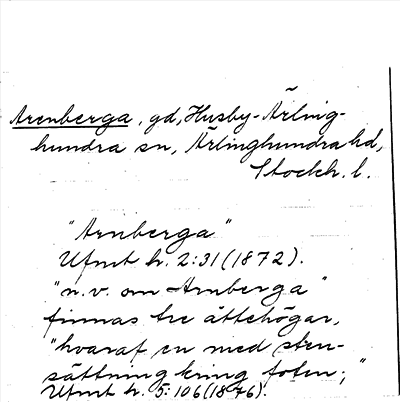 Arenberga, gd, Husby-Ärling-
hundra sn, Ärlinghundra hd,
Stockh. l.
"Arnberga"
Ufmt h. 2:31 (1872).
"n.v. om Arnberga"
finnas tre ättehögar,
"hvaraf en med sten-
sättning kring foten;"
Ufmt h. 5:106 (1876).